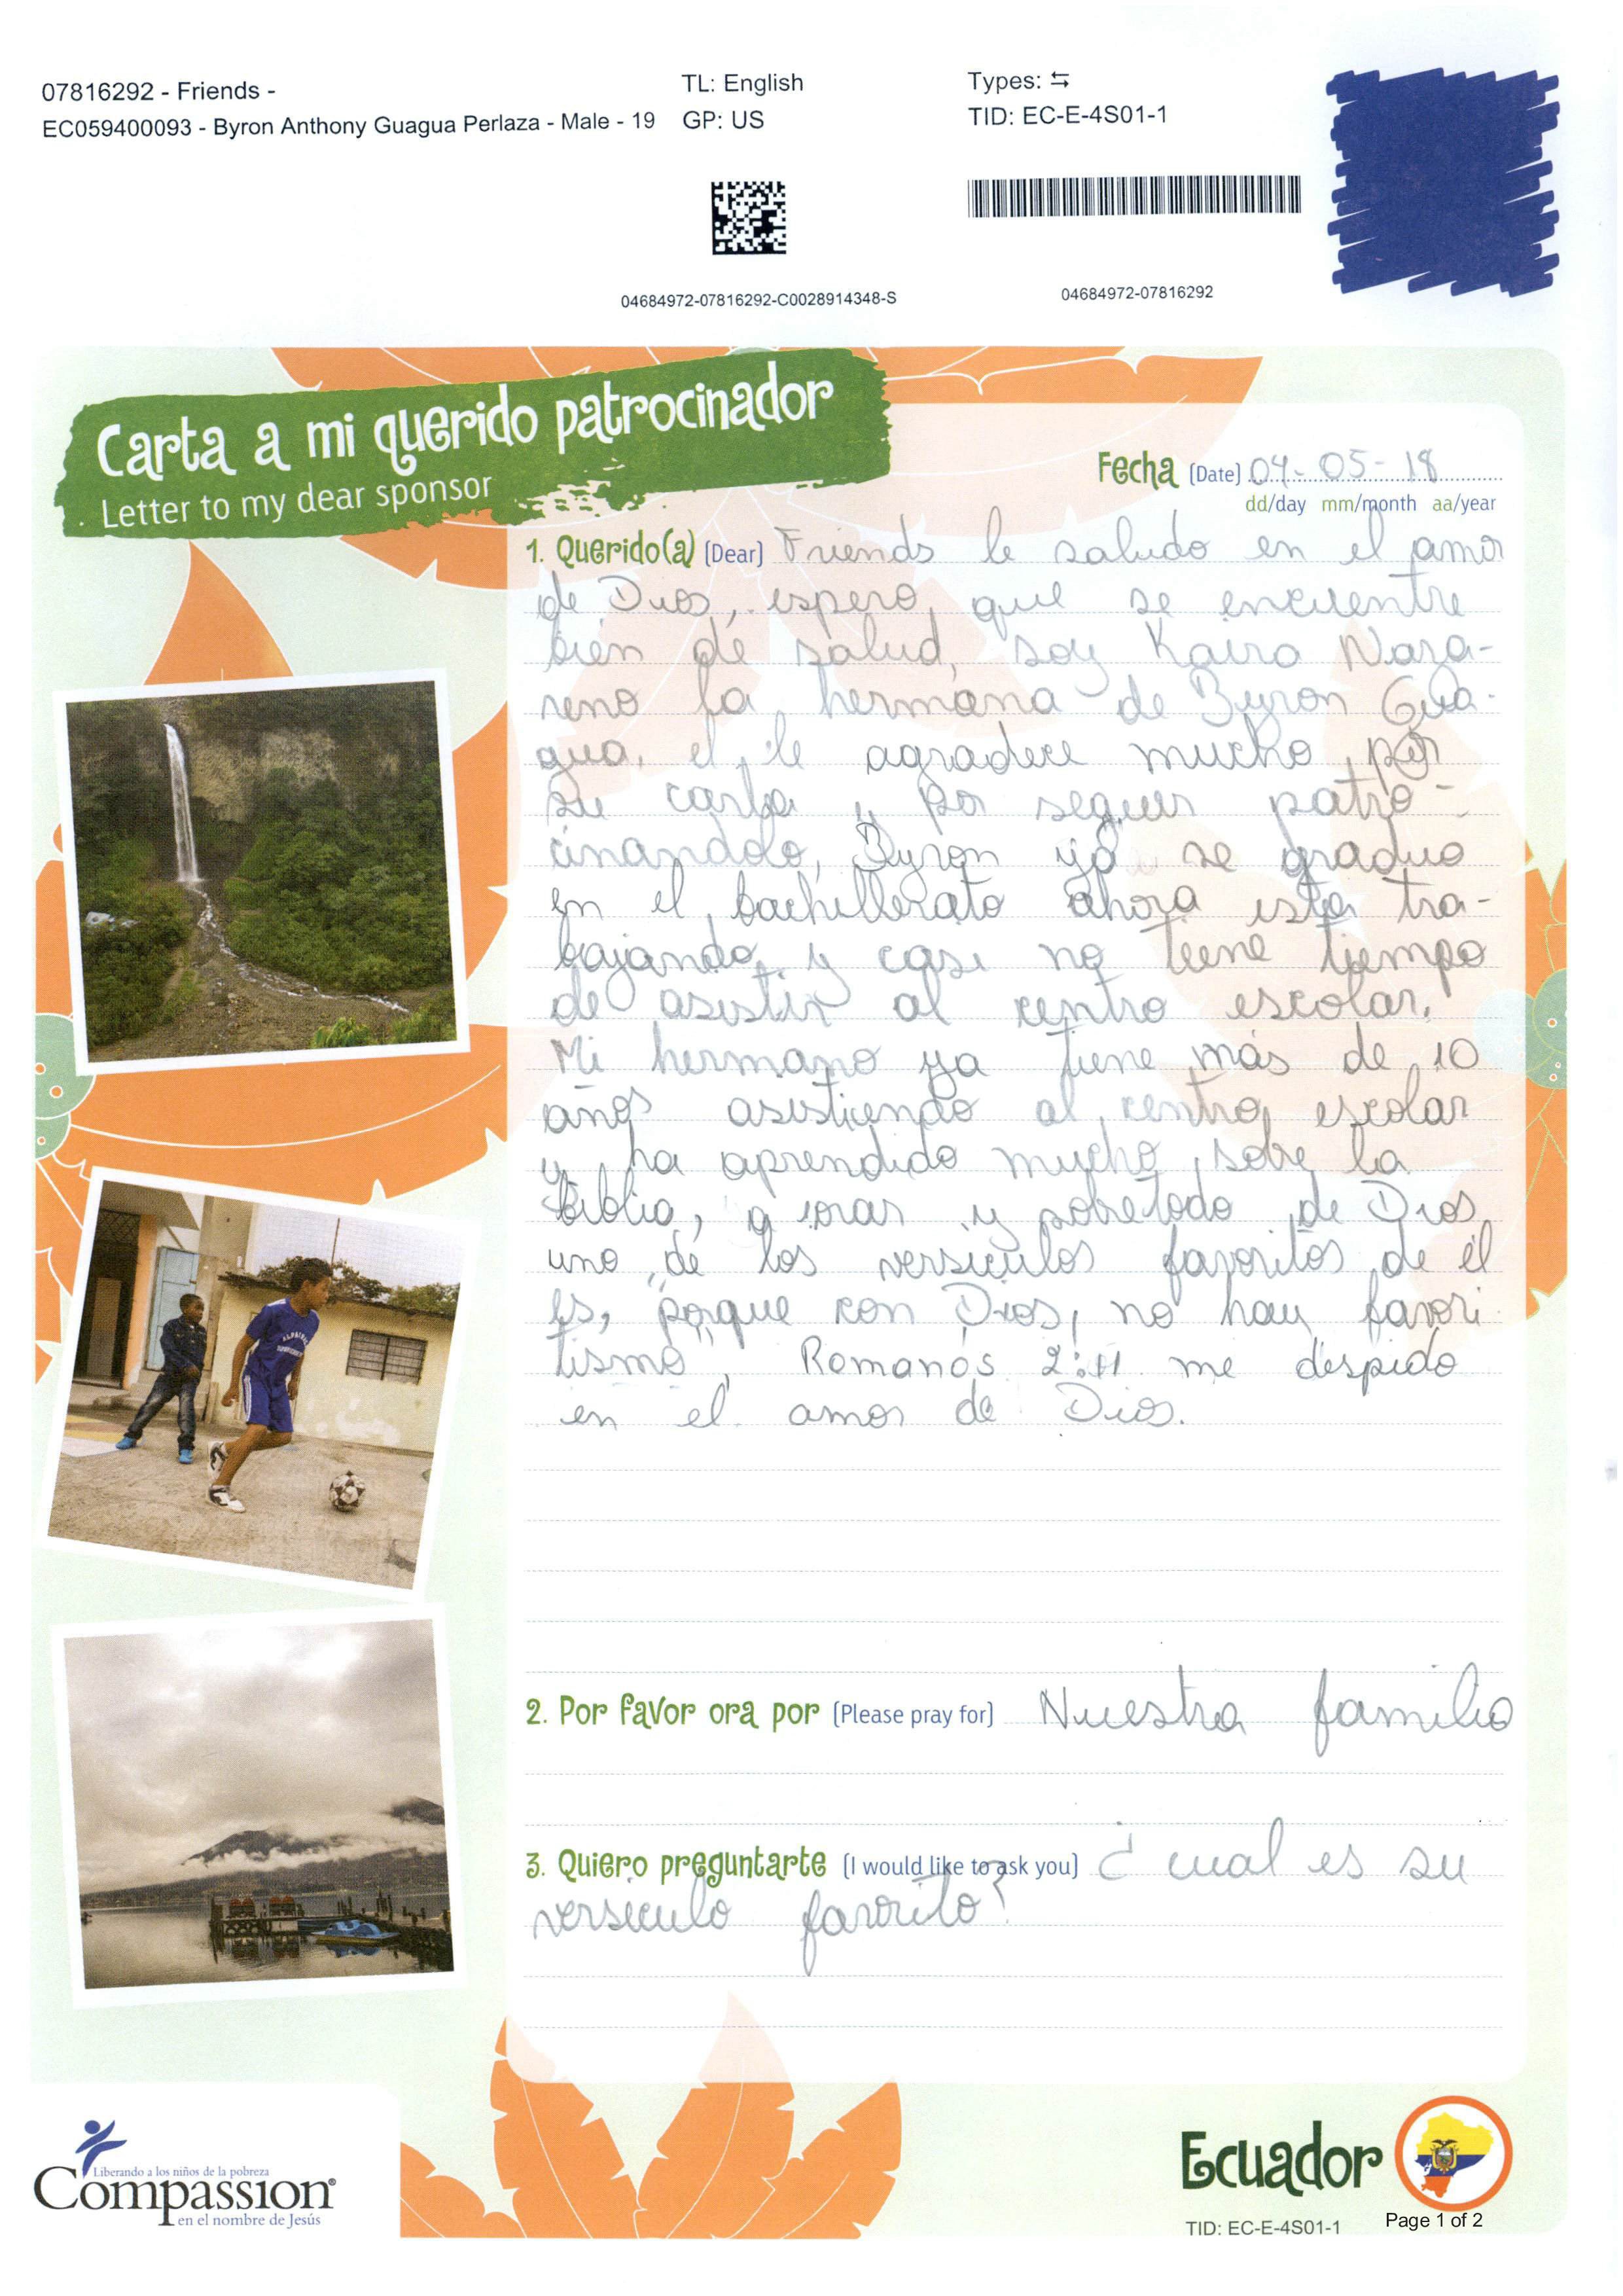 07816292 - Friends -
EC059400093 - Byron Anthony Guagua Perlaza - Male - 19
TL: English
GP: US
Types: ⇆
TID: EC-E-4S01-1
04684972-07816292-C0028914348-S
04684972-07816292
Carta a mi querido patrocinador
Letter to my dear sponsor
Fecha (Date) 04-05-18
dd/day mm/month aa/year
1. Querido(a) (Dear) Friends le saludo en el amor
de Dios, espero que se encuentre
bien de salud, soy Kaira Naza-
reno la hermana de Byron Gua-
gua, el le agradece mucho por
su carta y por seguir patro-
cinandolo, Byron ya se graduo
en el bachillerato ahora esta tra-
bajando y casi no tiene tiempo
de asistir al centro escolar.
Mi hermano ya tiene más de 10
años asistiendo al centro escolar
y ha aprendido mucho sobre la
Biblia, a orar y sobretodo de Dios
uno de los versiculos favoritos de él
es, "porque con Dios, no hay favori
tismo", Romanos 2:11 me despido
en el amor de Dios.
2. Por favor ora por (Please pray for) Nuestra familia
3. Quiero preguntarte (I would like to ask you) ¿cual es su
versiculo favorito?
Liberando a los niños de la pobreza
Compassion®
en el nombre de Jesús
Ecuador
TID: EC-E-4S01-1
Page 1 of 2